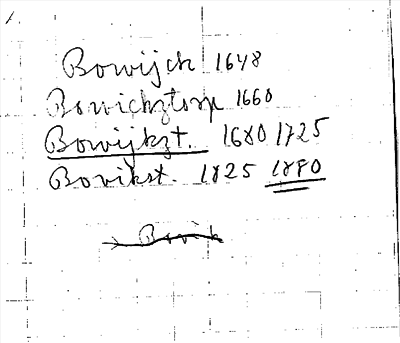 Bowijck 1648
Bowickztorp 1660
Bowijkzt. 1680 1725
Bovikst. 1825 1880